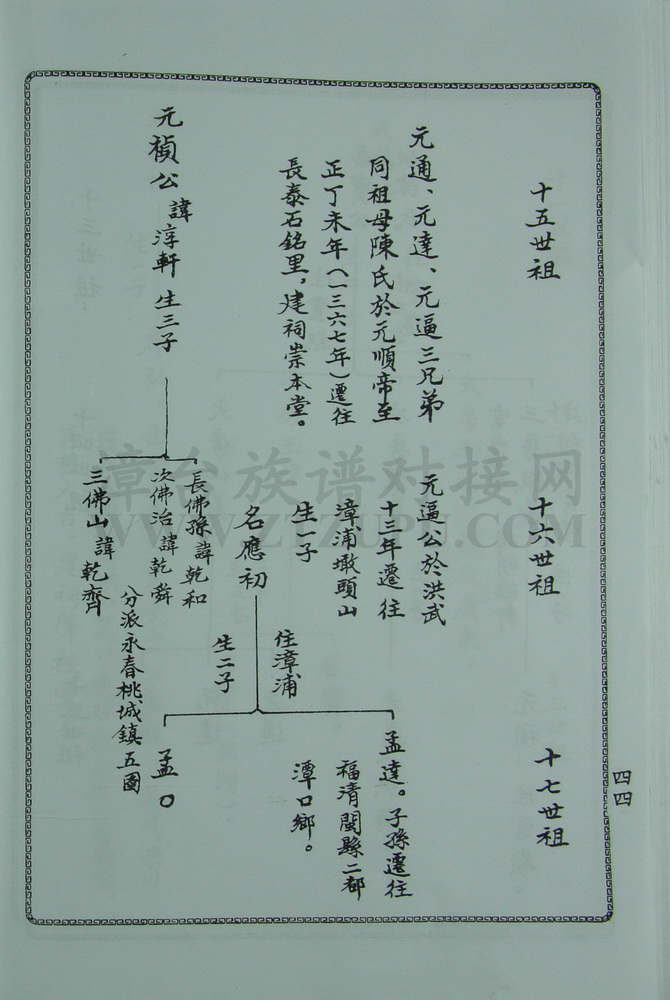 十五世祖
十六世祖
十七世祖
四四
元通、元達、元逼三兄弟
同祖母陳氏於元順帝至
正丁未年(一三六七年)遷往
長泰石銘里,建祠崇本堂。
元逼公於洪武
十三年遷往
漳浦墩頭山
生一子
名應初
住漳浦
生二子
孟達。子孫遷往
福清閩縣二都
潭口鄉。
孟〇
元禎公
諱淳軒 生三子
長佛孫諱乾和
次佛治諱乾舜
三佛山諱乾齊
分派永春桃城鎮五圖
章台族谱对接网
WWW.ZTZUPU.COM